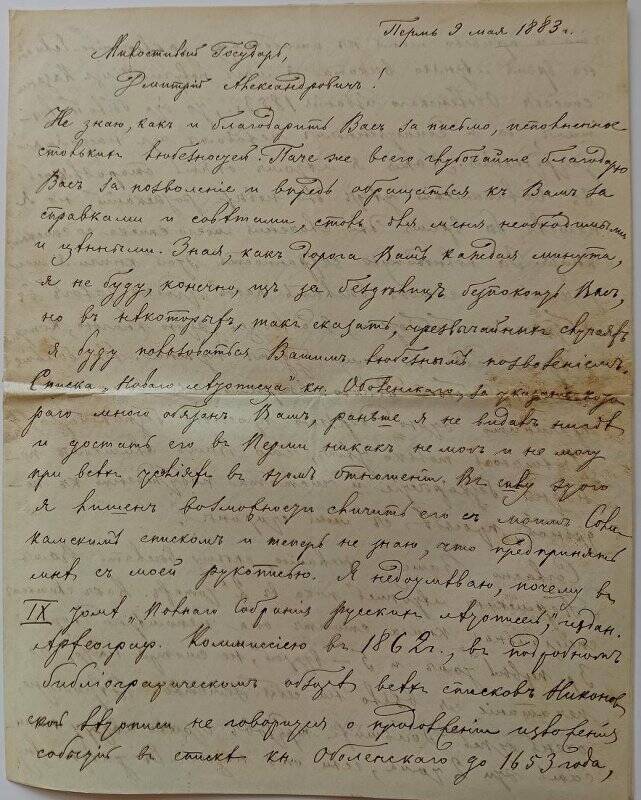 Пермь 9 мая 1883 г.
Милостивый Государь,
Дмитрій Александровичъ.
Не знаю, какъ и благодарить Васъ за письмо, исполненное
столькихъ любезностей. Паче же всего глубочайше благодарю
Васъ за позволеніе и впредь обращаться къ Вамъ за
справками и совѣтами, столь для меня необходимыми
и цѣнными. Зная, какъ дорога Вамъ каждая минута,
я не буду, конечно, изъ за бездѣлицъ безпокоить Васъ,
но въ нѣкоторыхъ, такъ сказать, чрезвычайныхъ случаяхъ
я буду пользоваться Вашимъ любезнымъ позволеніемъ.
Списка „Новаго лѣтописца" кн. Оболенскаго, за указаніе кото
раго много обязанъ Вамъ, раньше я не видалъ нигдѣ
и достать его въ Перми никакъ не могъ и не могу
при всѣхъ усиліяхъ въ этомъ отношеніи. Въ силу этого
я лишенъ возможности сличить его съ моимъ Соли-
камскимъ спискомъ и теперь не знаю, что предпринять
мнѣ съ моей рукописью. Я недоумѣваю, почему въ
IX томѣ „Полнаго Собранія русскихъ лѣтописей" издан.
Археограф. Коммиссіею въ 1862 г., въ подробномъ
библіографическомъ обзорѣ всѣхъ списковъ Никонов
ской лѣтописи не говорится о продолженіи изложенія
событій въ спискѣ кн. Оболенскаго до 1653 года,